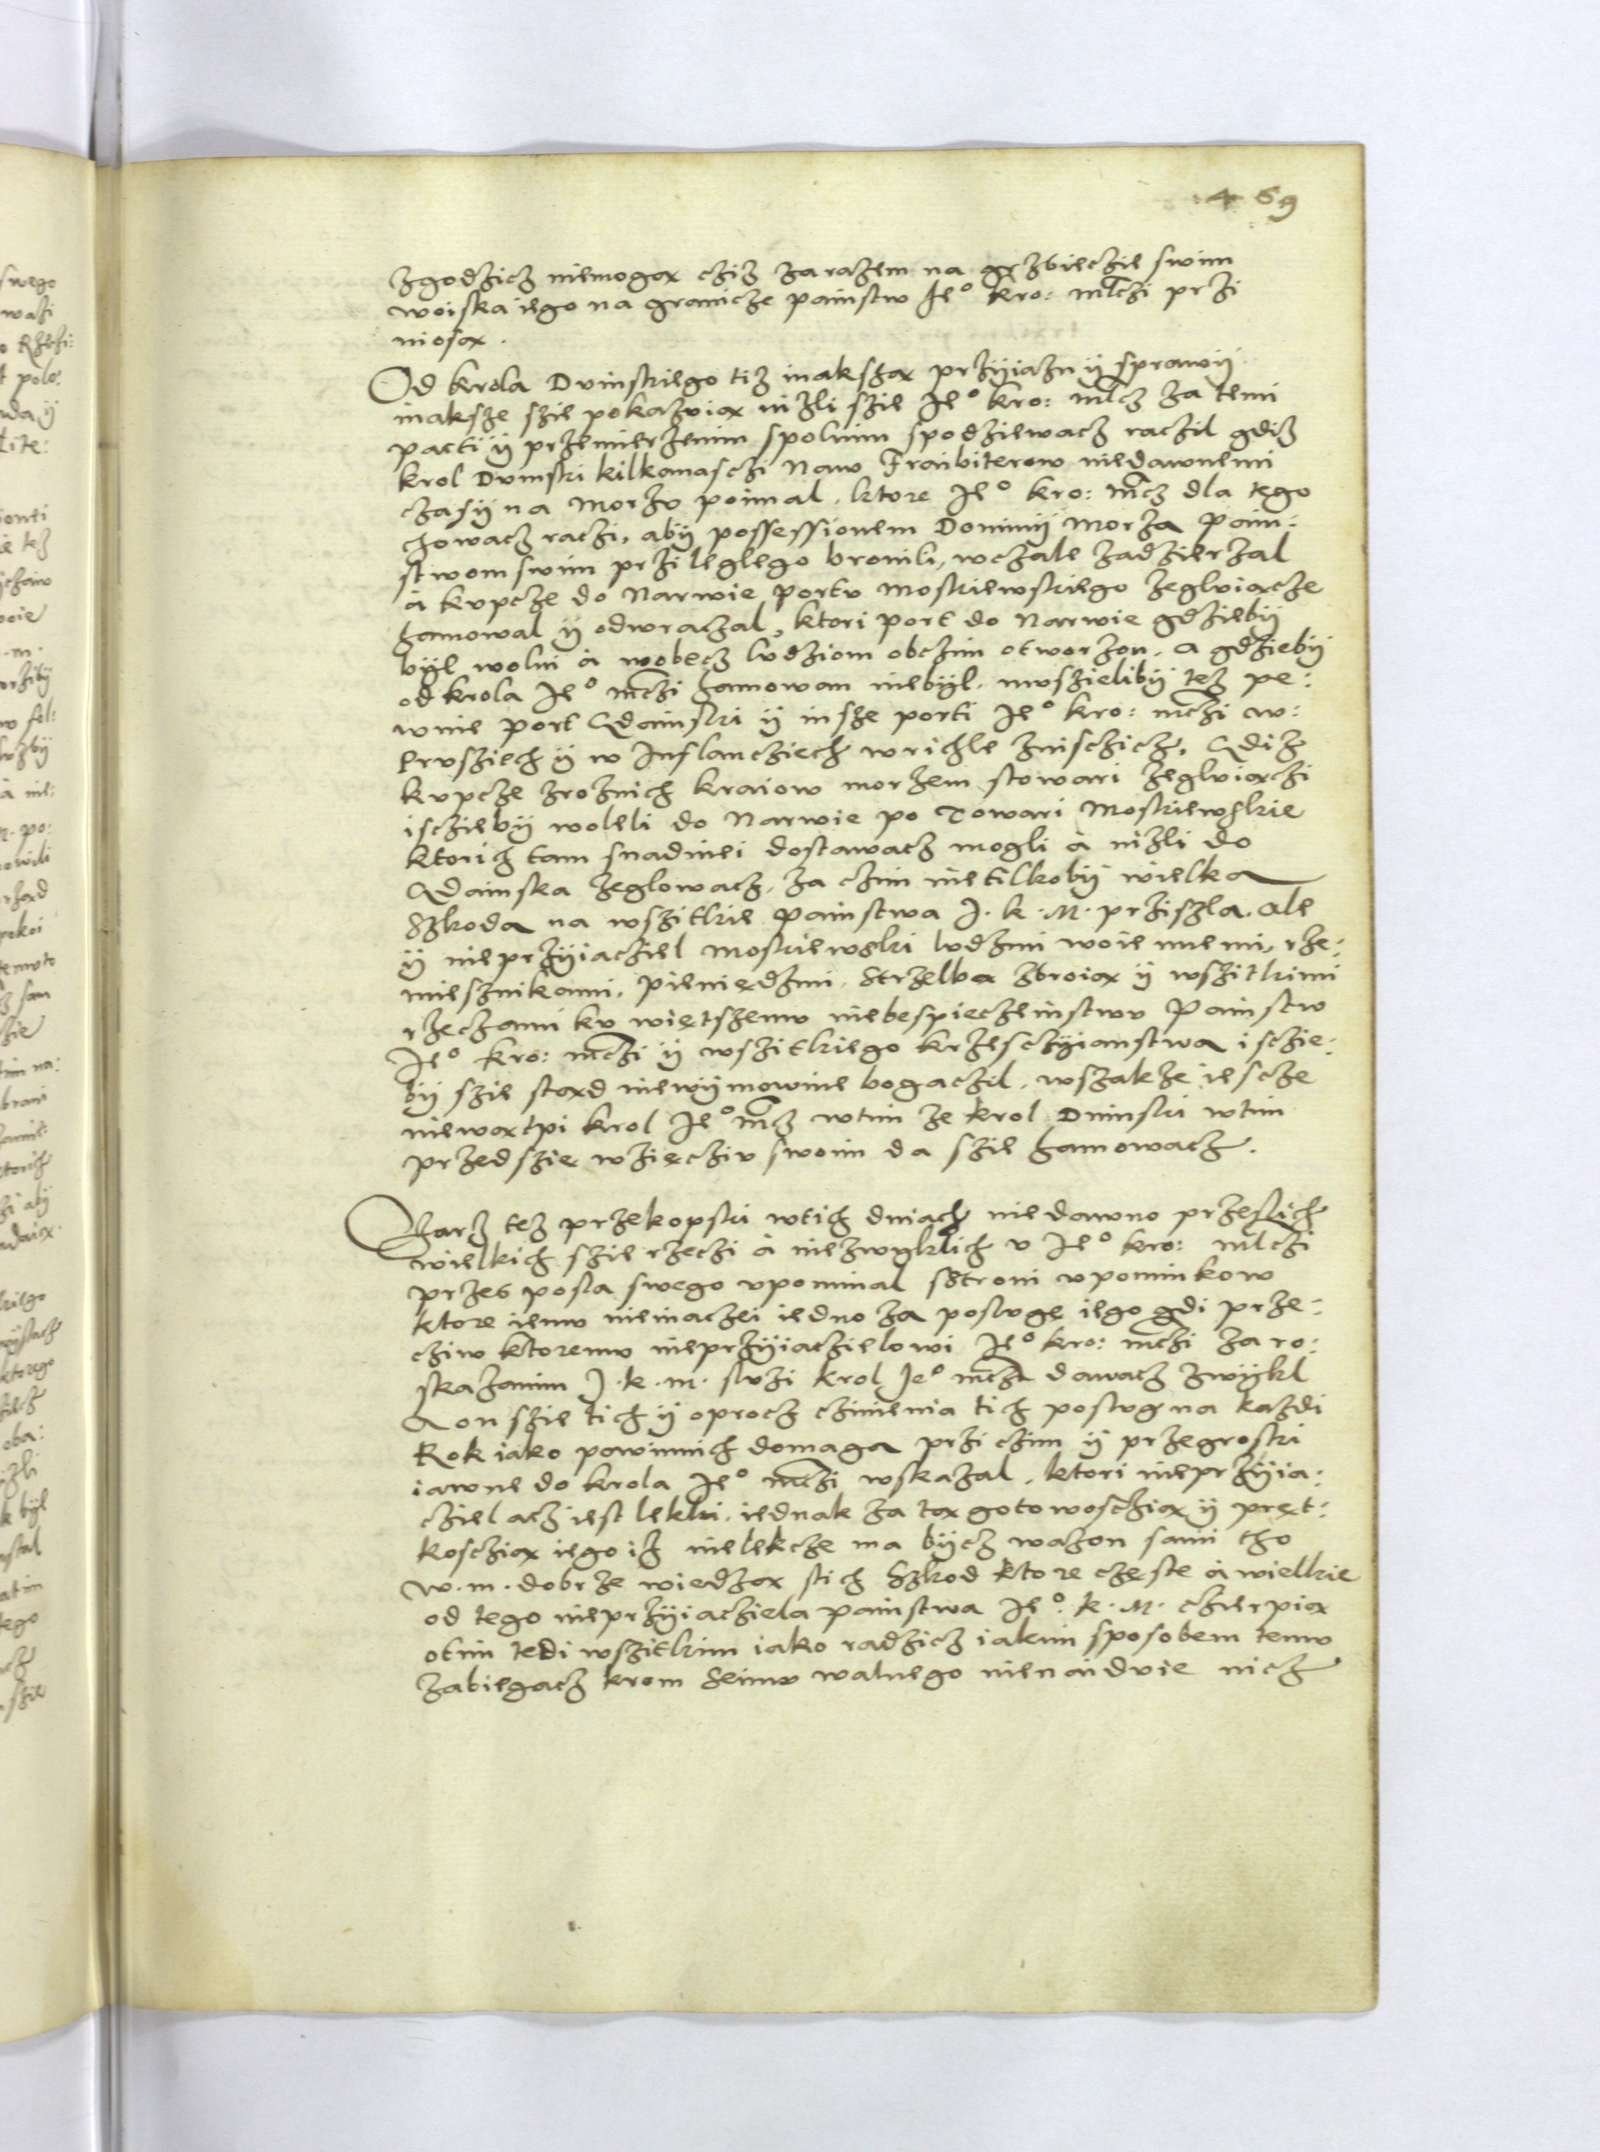 469
zgodzicz niemogax cziz zarazem na grzbieczie swim
woiska iego na granicze painstw Ie° kro: mczi przi
niosax.
Od krola Duinskiego tiz inakszax przyiazn ÿ sprawÿ
inaksze szie pokazuiax nizli szie Ie° kro: mcz za temi
pacti ÿ przemierzenim spolnim spodziewacz raczil gdiz
krol Duinski kilkanasczi Naw Fraibiterow niedawnemi
czasÿ na Morzu poimal. ktore Ie° kro: mcz dla tego
chowacz raczi, abÿ possessionem Dominÿ Morza Pain:
stwom swim przileglego bronili, wczale zadzierzal
à kupcze do Narwie portu Moskiewskiego zegluiacze
hamowal ÿ odwraczal, ktori port do Narwie gdziebÿ
bÿl wolni à wobecz ludziom obczim otworzon, a gdziebÿ
od krola Ie° mczi hamowan niebÿl. muszielibÿ tez pe:
wnie port Gdainski ÿ insze porti Ie° kro: mczi w:
Prusziech ÿ w Inflancziech wrichle znisczicz. Gdiz
kupcze zroznich kraiow morzem stowari zegluiaczi
iscziebÿ woleli do Narwie po Towari Moskiewskie
ktorich tam snadniei dostawacz mogli à nizli do
Gdainska zeglowacz, za czim nietilkobÿ wielka
Szkoda na wszitkie painstwa I. k. M. priszla. ale
ÿ nieprzÿiacziel moskiewski ludzmi woiennemi, rze:
miesznikami, pieniędzmi, Strzelbax zbroiax ÿ wszitkimi
rzeczami ku więtszemu niebespieczeinstwu Painstw
Ie° kro: mczi ÿ wszitkiego krzesczÿianstwa isczie:
bÿ szie staxd niewÿmowine bogaczil. wszakze iescze
niewaxtpi krol Ie° mcz wtim ze krol Duinski wtim
przedszię wzięcziu swoim da szie hamowacz.
Czarz tez przekopski wtich dniach niedawno przeslich
wielkich szie rzeczi à niezwyklich u Ie° kro: mczi
przes posla swego upominal Stroni upominkow
ktore iemu nieinaczei iedno za poslugę iego gdi prze:
cziw ktoremu nieprzÿiaczielowi Ie° kro: mczi za ro:
skazanim I. k. m. sluzi krol Ie° mcz dawacz zwÿkl
A on szie tich ÿ oprocz czinienia tich poslug na kazdi
Rok iako powinnich domaga przi czim ÿ przegroski
iawne do krola Ie° mczi wskazal. ktori nieprzÿia:
cziel acz iest lekki. iednak za tax gotowoscziax ÿ pręt:
koscziax iego iz nielekcze ma bÿcz wazon sami tho
w. m. dobrze wiedzax stich Szkod ktore częste à wielkie
od tego nieprzÿiacziela painstwa Ie° k. M. czierpiax
otim tedi wszitkim iako radzicz iakim sposobem temu
zabiegacz krom Seimu walnego nienaiduie nicz